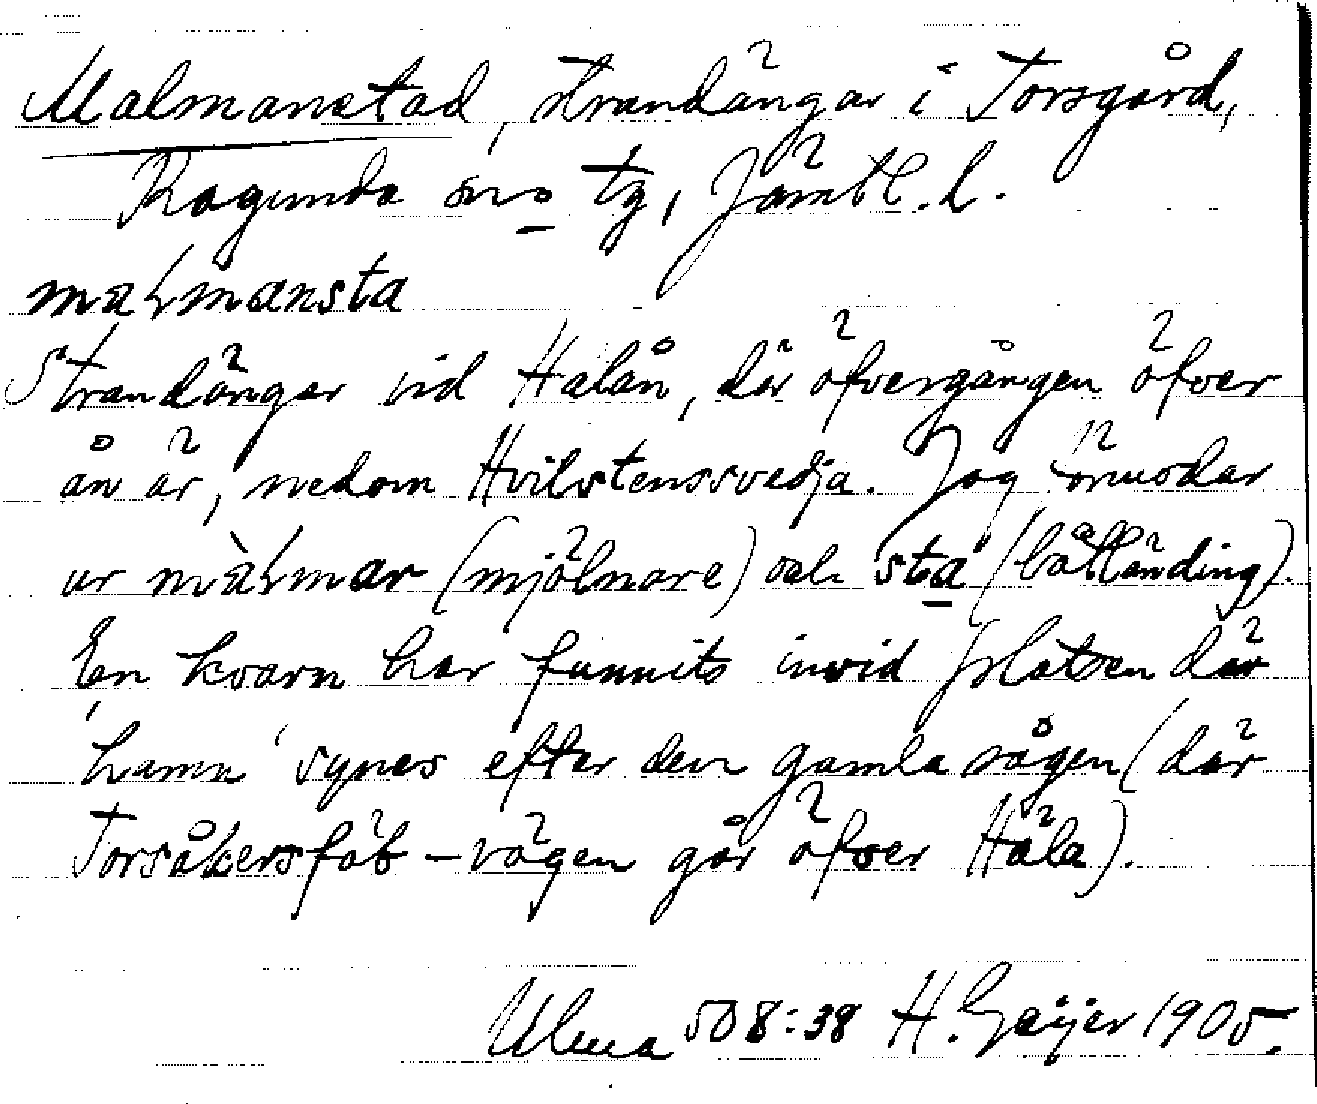 Malmanstad, strandängar i Torsgård,
Ragunda sn o tg, Jämtl. l.
malmansta
Strandängar vid Halån, där öfvergången öfver
ån är, nedom Hvilstenssvedja. Jag förmodar
ur màlmar (mjölnare) och sta (båtländing).
En kvarn har funnits invid platsen där
'hamn' synes efter den gamla sågen (där
Torsåkersfäb-vägen går öfver Håla).
Ulma 508:38 H. Geijer 1905.